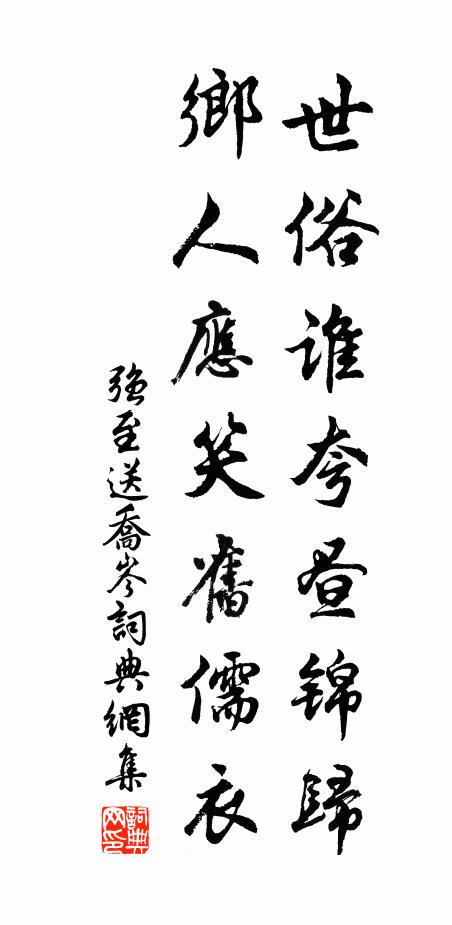 世俗誰夸昼錦歸
鄉人應笑舊儒衣
強至送喬岑詞典網集
詞典网印